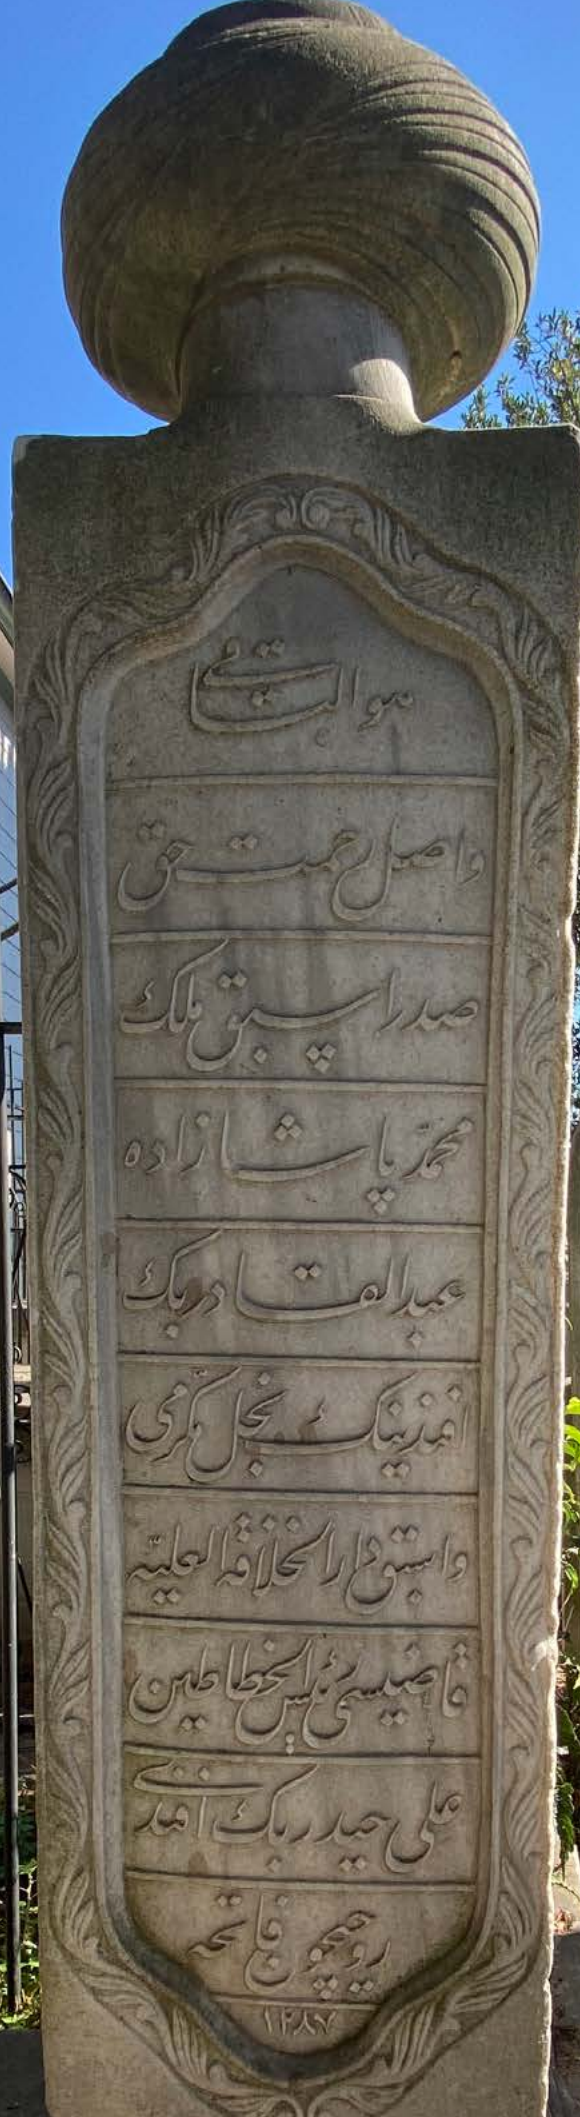 هو الباقی
واصل رحمت حق
صدر اسبق ملك
محمّد پاشا زاده
عبد القادر بك
افندینك نجل مكرّمی
واسبق دار الخلافة العلیّه
قاضیسی رئیس الخطاطین
علی حیدر بك افندی
روحیچون فاتحه
١٢٨٧